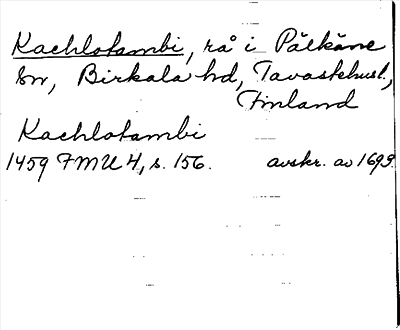 Kachlolambi, rå i Pälkäne
sn, Birkala hd, Tavastehusl.,
Finland
Kachlolambi
1459 FMU 4, s. 156. avskr. av 1693.